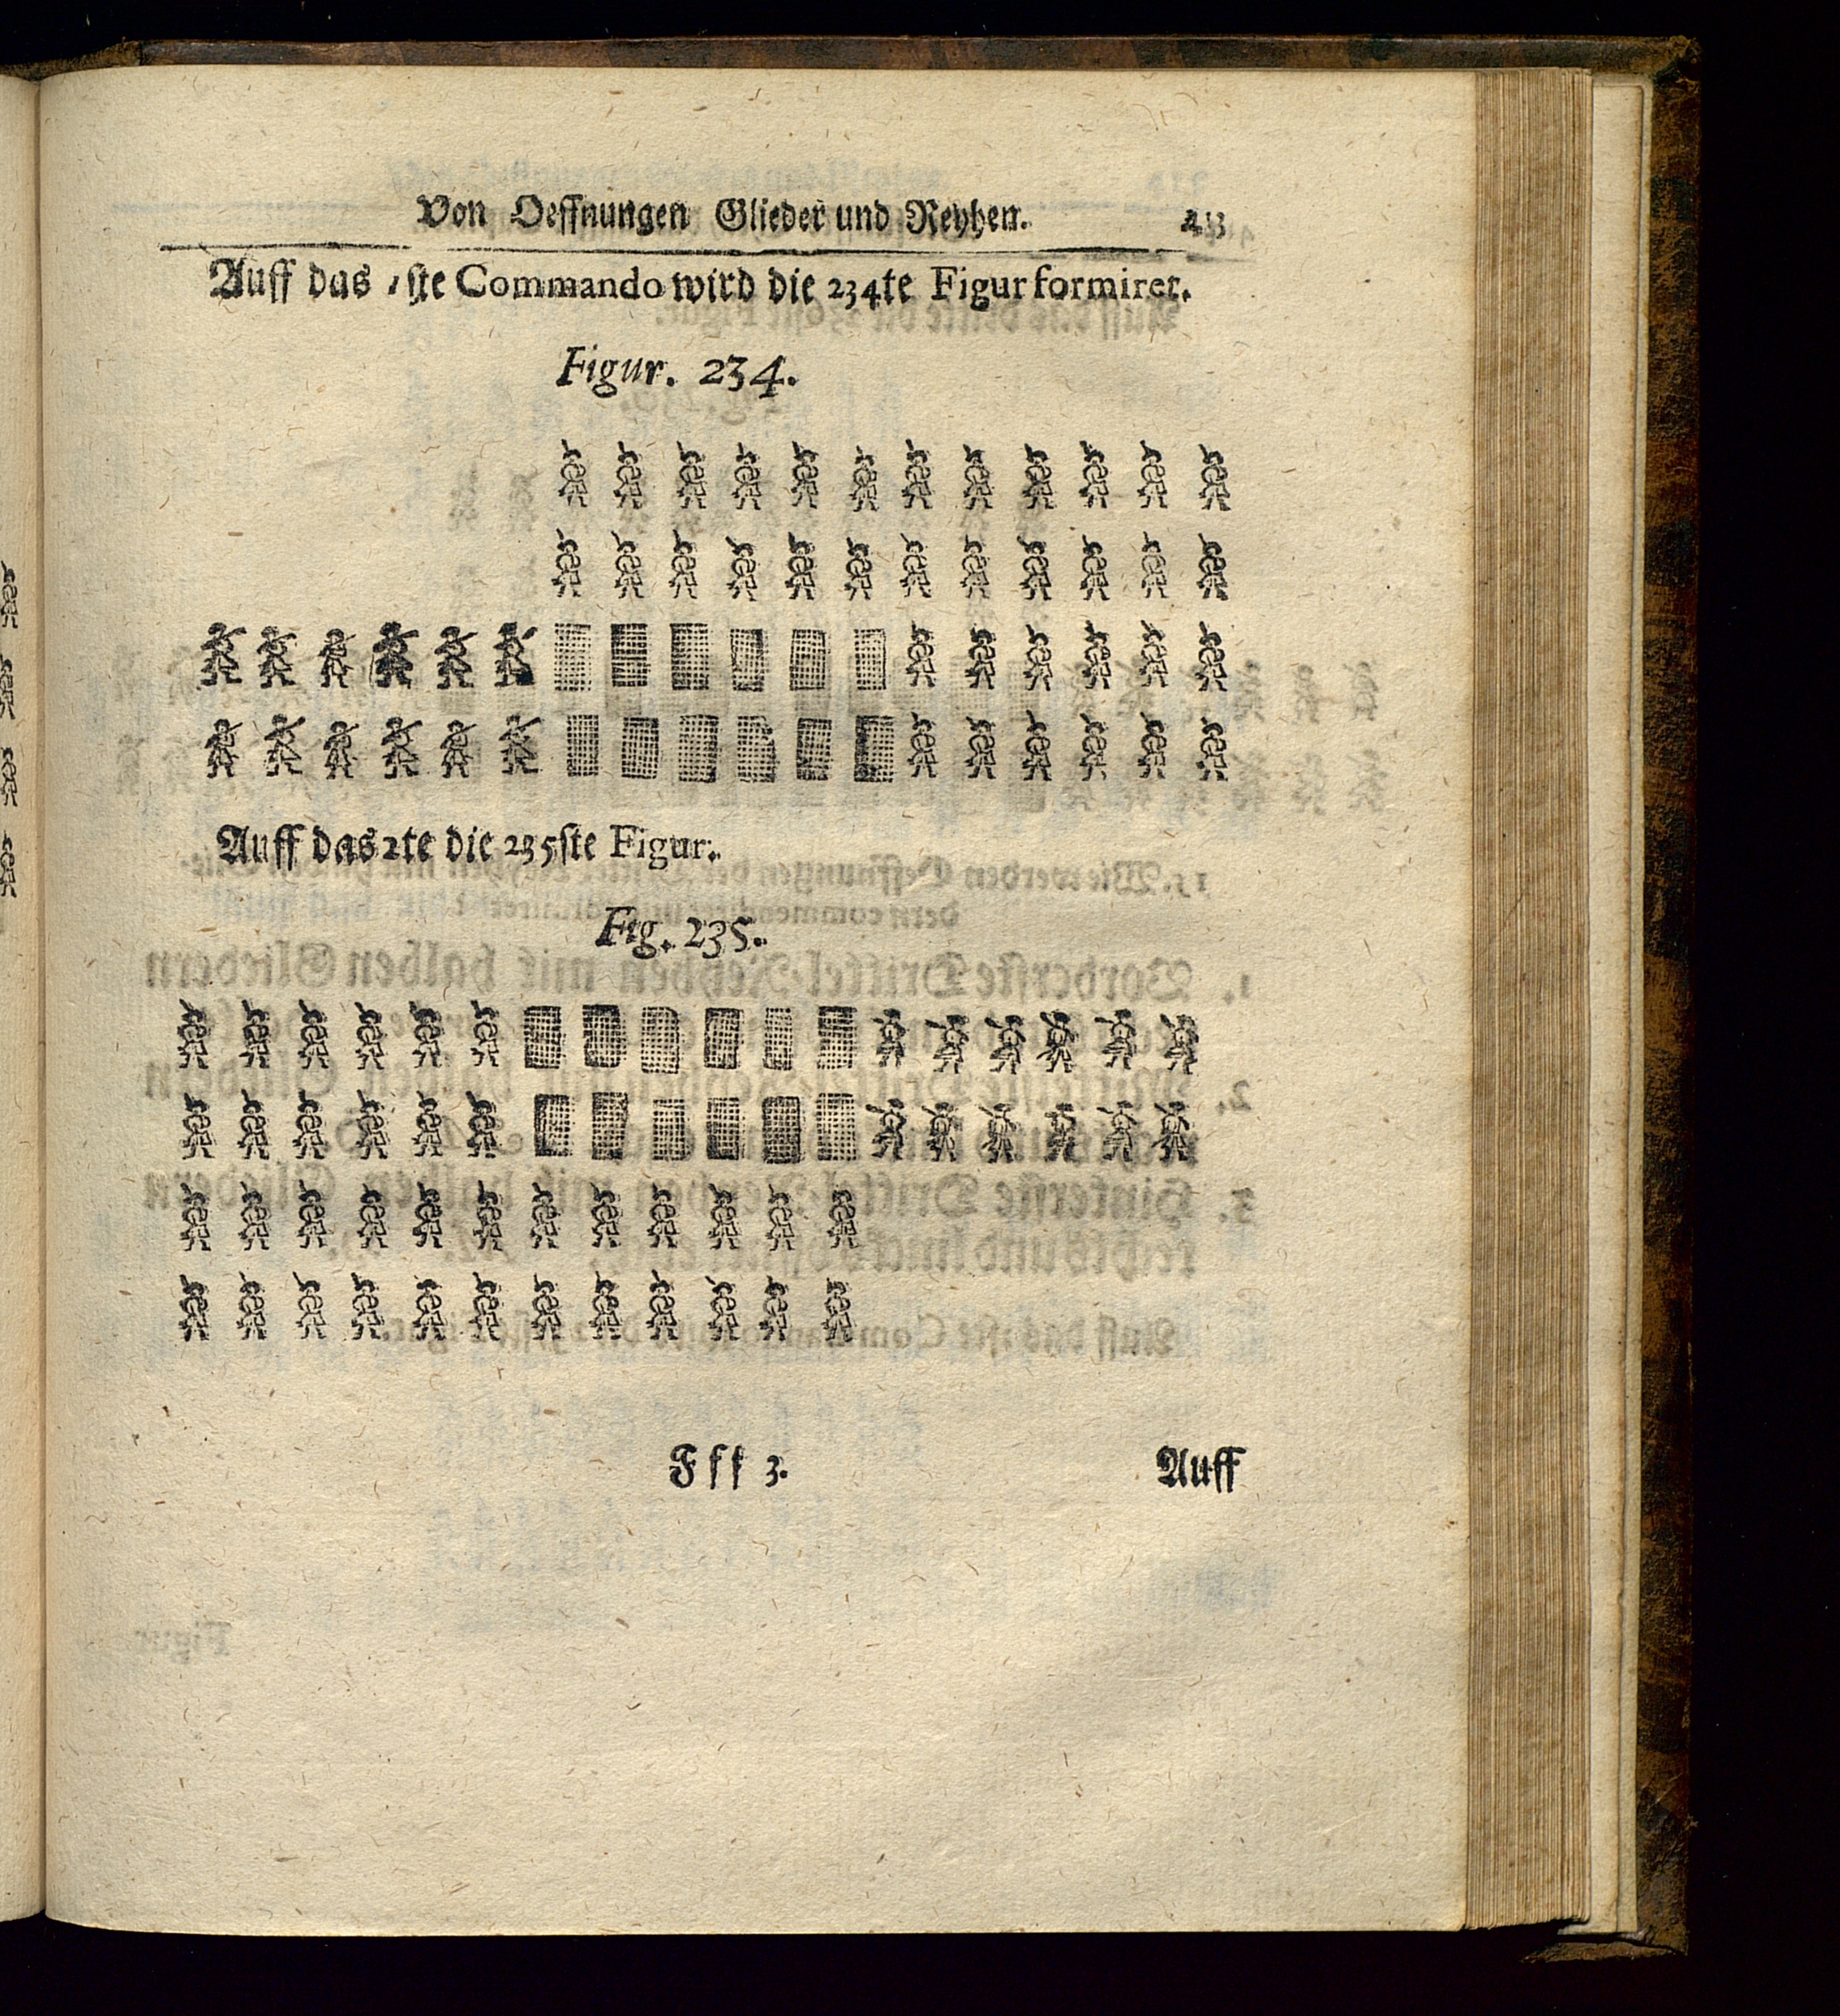 Von Oeffnungen Glieder und Reyhen. 413
Auff das 1ste Commando wird die 234te Figur formiret.
Figur. 234.
Auff das 2te die 235ste Figur.
Fig. 235.
Fff 3.
Auff